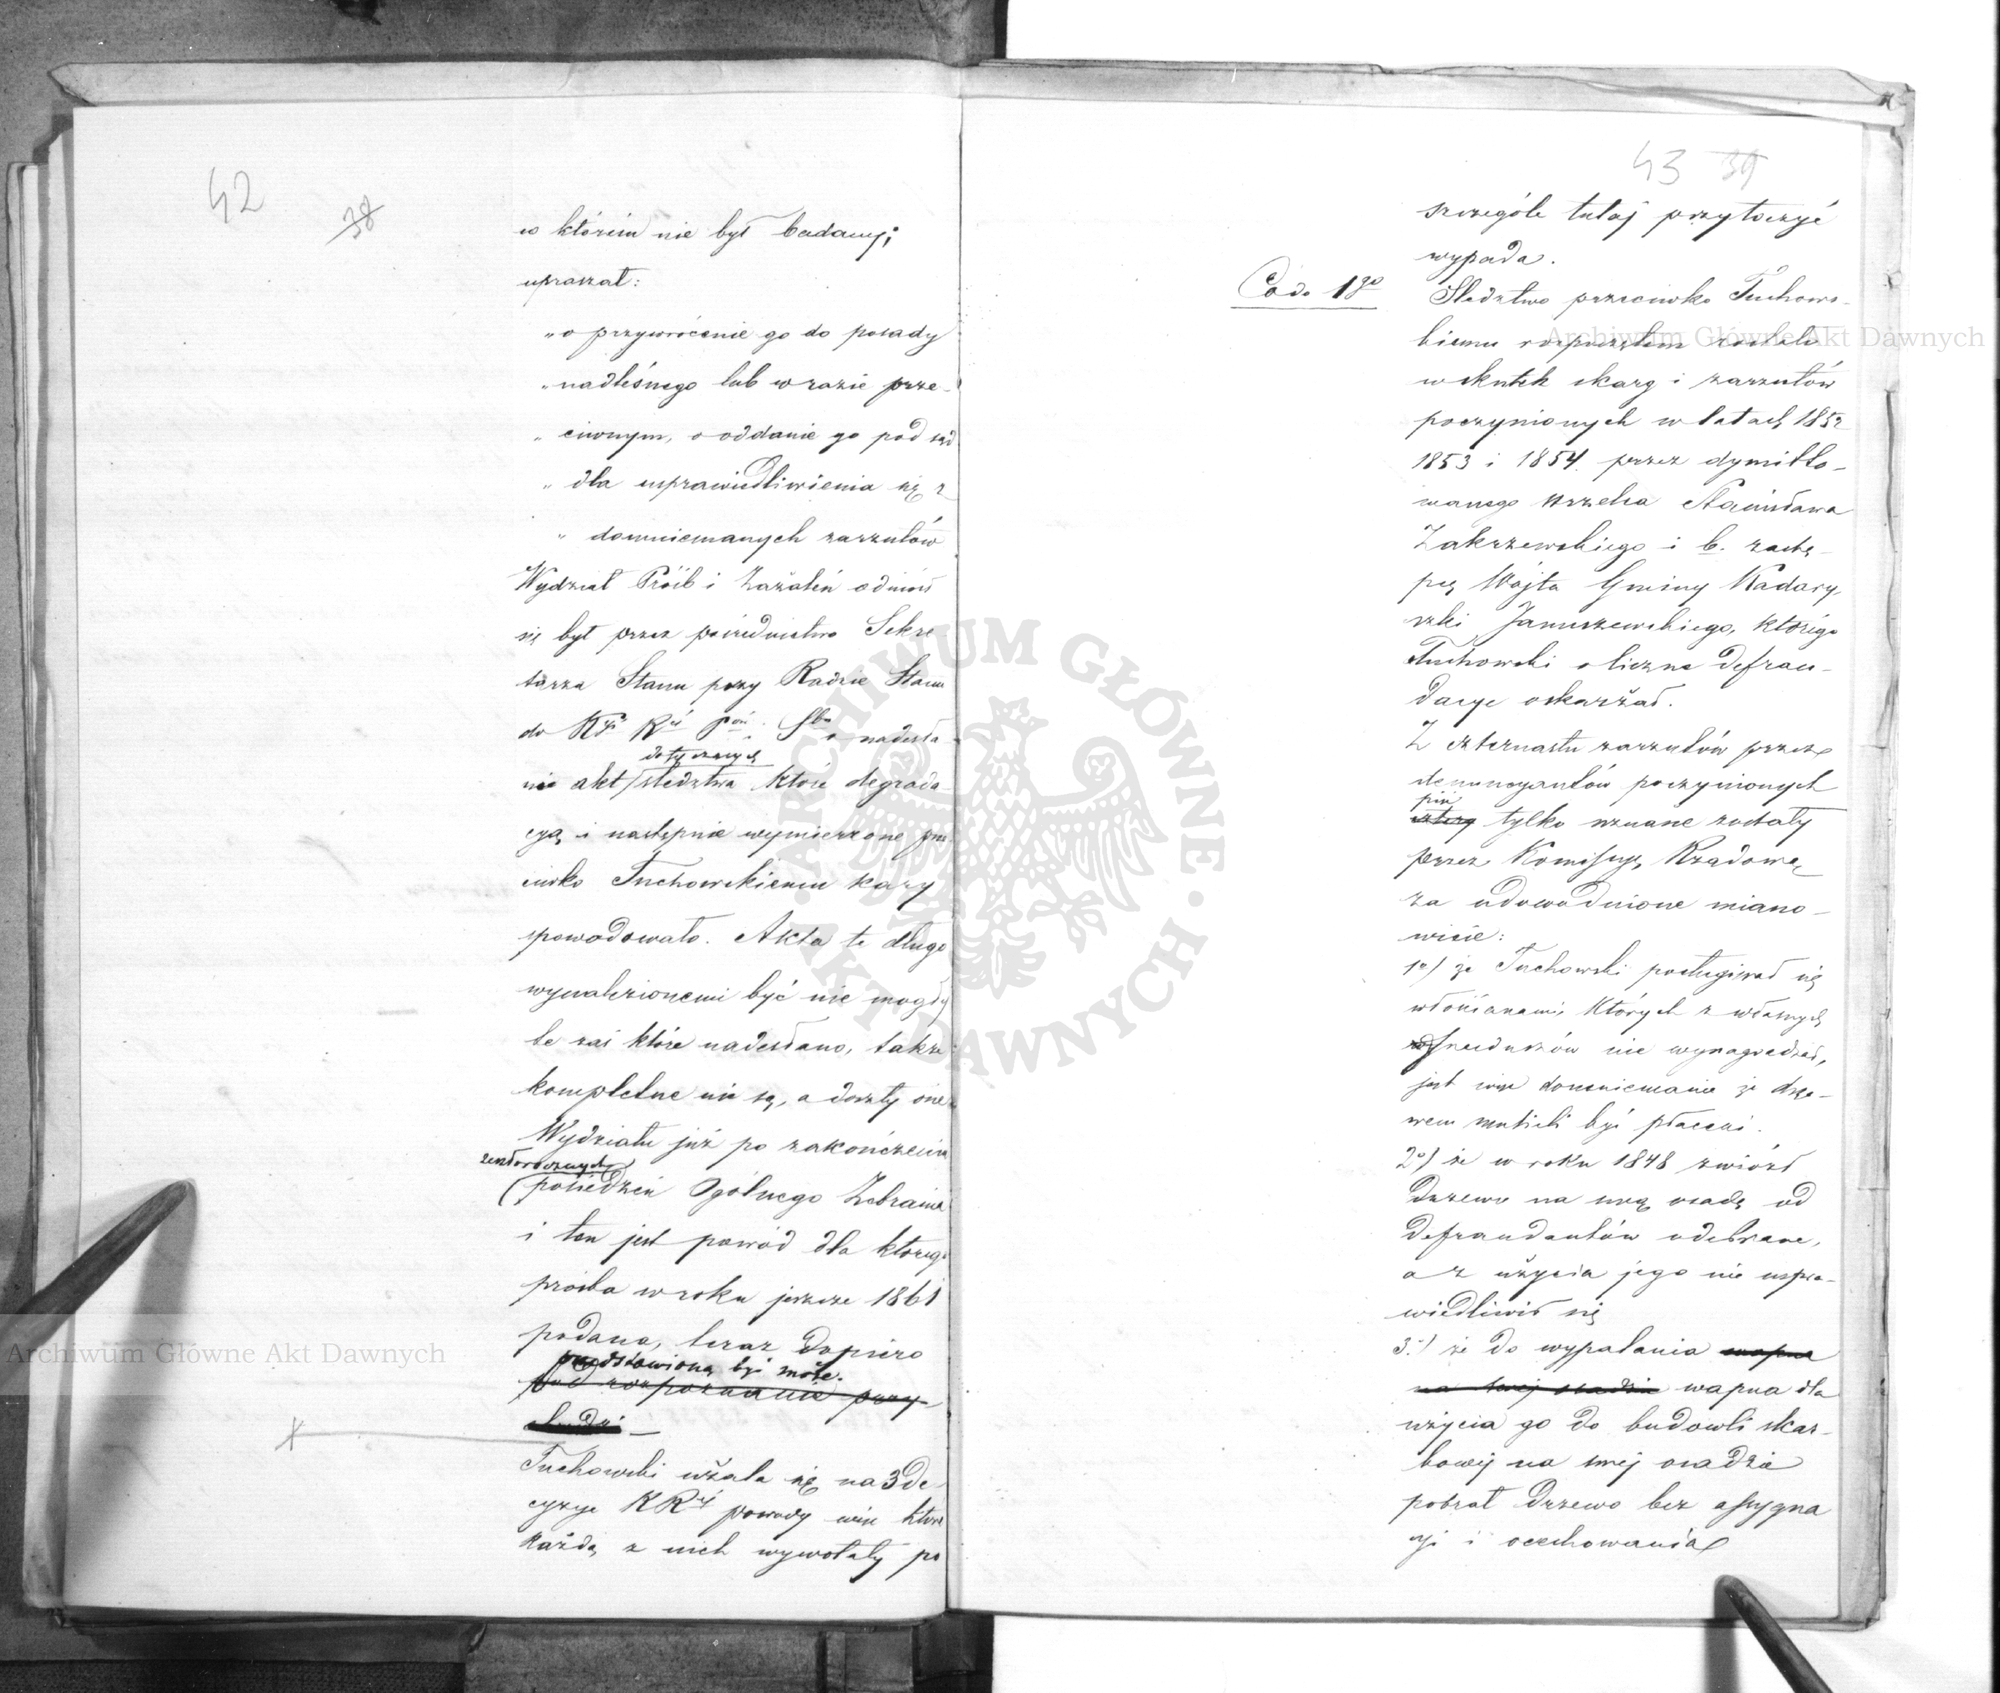 42
38
w którém nie był badany;
upraszał:
„o przywrócenie go do posady
„nadleśnego lub w razie prze-
„ciwnym, o oddanie go pod sąd
„dla usprawiedliwienia się z
„domniemanych zarzutów
Wydział Próśb i Zażaleń odniósł
się był przez pośrednictwo Sekre-
tarza Stanu przy Radzie Stanu
do Kyi Réj o nadesła-
dotyczących
nie akt śledztwa które degrada-
cyą i następnie wymierzone prze-
ciwko Tuchowskiemu kary
spowodowało. Akta te długo
wynalezionemi być nie mogły
te zaś które nadesłano, także
kompletne nie są, a doszły one
Wydziału już po zakończeniu
zeszłorocznych
posiedzeń Ogólnego Zebrania
i ten jest powód dla którego
prośba w roku jeszcze 1861
podana, teraz dopiero
przedstawioną być może.
pod rozpoznanie przy-
chodzi
Tuchowski użala się na 3 de-
cyzye KRéj powody win które
każdą z nich wywołały po
43 39
szczególe tutaj przytoczyć
wypada.
Co do 1go
Śledztwo przeciwko Tuchow-
skiemu rozpoczętem zostało
w skutek skarg i zarzutów
poczynionych w latach 1852
1853 i 1854 przez dymissio-
wanego strzelca Stanisława
Zakrzewskiego i b. zastę-
pcę Wójta Gminy Kadary-
szki Januszewskiego, którego
Tuchowski o liczne defrau-
dacye oskarżał.
Z czternastu zarzutów przez
denuncyantów poczynionych
pięć
cztery tylko uznane zostały
przez Komissyę Rządową
za udowodnione miano-
wicie:
1o) że Tuchowski posługiwał się
włościanami, których z własnych
funduszów nie wynagradzał,
jest więc domniemanie że drze-
wem musieli być płaceni.
2o) że w roku 1848 zwiózł
drzewo na swą osadę od
defraudantów odebrane,
a z użycia jego nie uspra-
wiedliwił się
3o) że do wypalania wapna
na swej osadzie wapna dla
użycia go do budowli skar-
bowej na swej osadzie
pobrał drzewo bez assygna
cyi i ocechowania
Archiwum Główne Akt Dawnych
Archiwum Główne Akt Dawnych
ARCHIWUM GŁÓWNE · AKT DAWNYCH ·